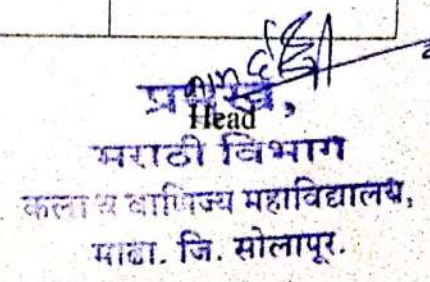 प्रमुख,
Head
मराठी विभाग
कला व वाणिज्य महाविद्यालय,
माढा. जि. सोलापूर.